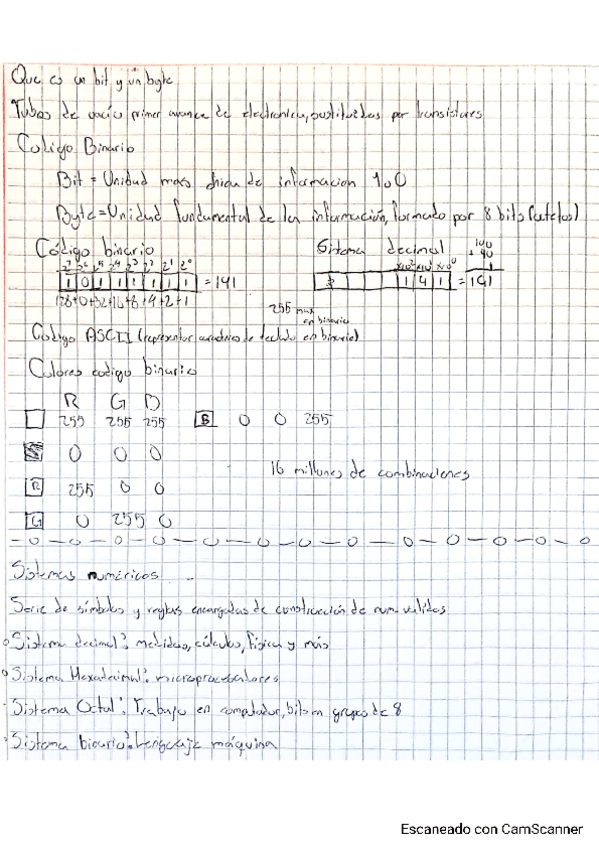 Que es un bit y un byte
Tubos de vacío primer avance de electronica, sustituidos por transistores
Codigo Binario
Bit = Unidad mas chica de informacion 1 o 0
Byte = Unidad fundamental de la información, formado por 8 bits (octetos)
Código binario
Sitema decimal
100
+ 40
1
2⁷ 2⁶ 2⁵ 2⁴ 2³ 2² 2¹ 2⁰
x10² x10¹ x10⁰
1 0 1 1 1 1 1 1 = 191
1 4 1 = 141
128+0+32+16+8+4+2+1
255 max en binario
Codigo ASCII (representar caracteres de teclado en binario)
Colores codigo binario
R G B
255 255 255
B 0 0 255
0 0 0
16 millones de combinaciones
R 255 0 0
G 0 255 0
Sistemas numéricos
Serie de símbolos y reglas encargadas de construcción de num validos
Sistema decimal: medidas, cálculos, física y más
Sistema Hexadecimal: microprocesadores
Sistema Octal: Trabajo en computador, bits en grupos de 8
Sistema binario: Lenguaje máquina
Escaneado con CamScanner